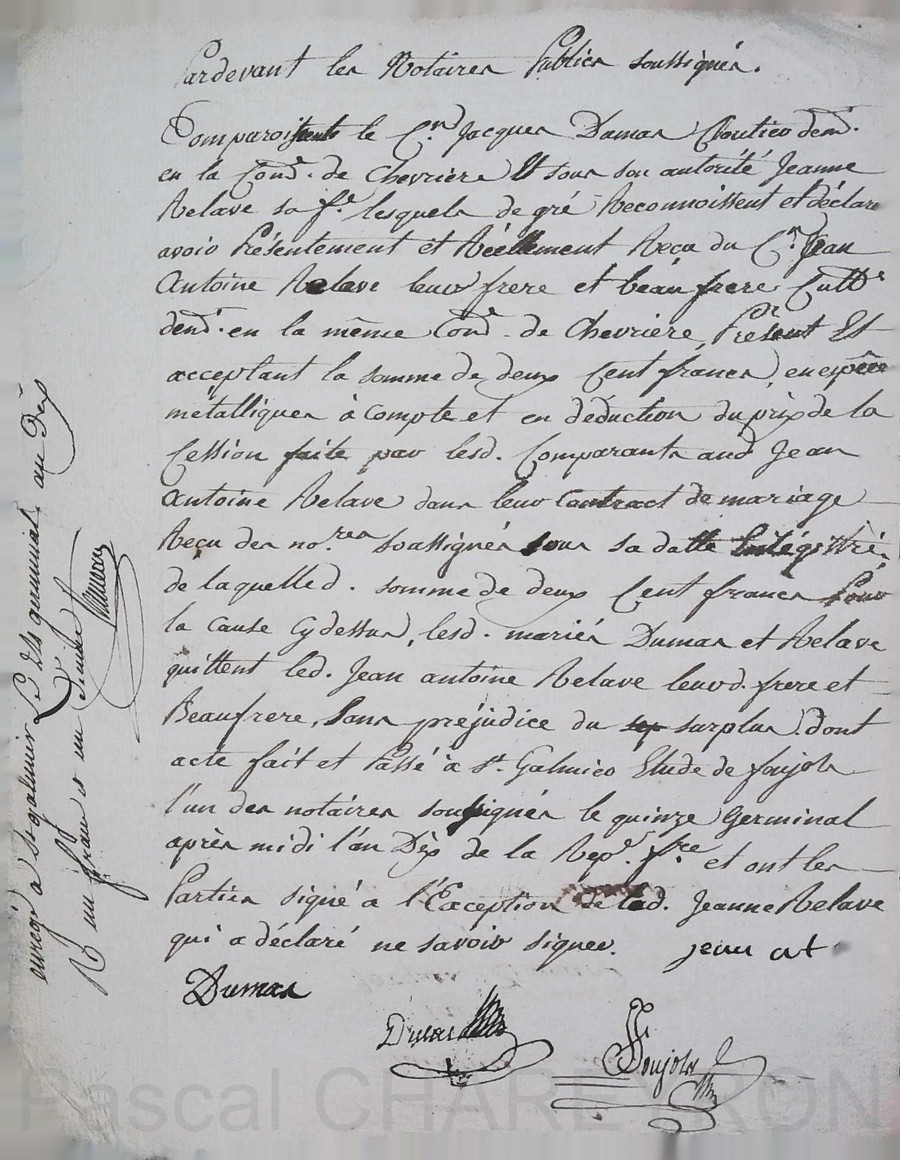 Pardevant les Notaires Publics soussignés.
Comparoissent le C.en Jacques Dumas dem.t
en la Com.e de Chevriere Et sous son autorité Jeanne
Relave sa f.e lesquels de gré Reconnoissent et déclare
avoir Présentement et Réellement Reçu du C.n Jean
Antoine Relave leur frere et beau frere, Cult.r
dem.t en la même Com.e de Chevriere, Présent Et
acceptant la somme de deux Cent francs, en espèce
métalliques à Compte et en déduction du prix de la
Cession faite par lesd. Comparants aud. Jean
Antoine Relave dans leur Contract de mariage
Reçu des no.res soussignés sous sa datte Enrégistré,
de laquelle d. somme de deux Cent francs Pour
la Cause Cydessus, lesd. mariés Dumas et Relave
quittent led. Jean antoine Relave leurd. frere et
Beaufrere, Sans préjudice du surplus. dont
acte fait et Passé à St. Galmier Etude de foujols
l'un des notaires soussignés le quinze Germinal
après midi l'an Dix de la Rep.e f.se et ont les
Parties signé a l'Exception de lad. Jeanne Relave
qui a déclaré ne savoir signer. jean at
Dumas
Foujols
enregé a St galmier le germinal an Dix
R un franc et un
Pascal CHAREYRON